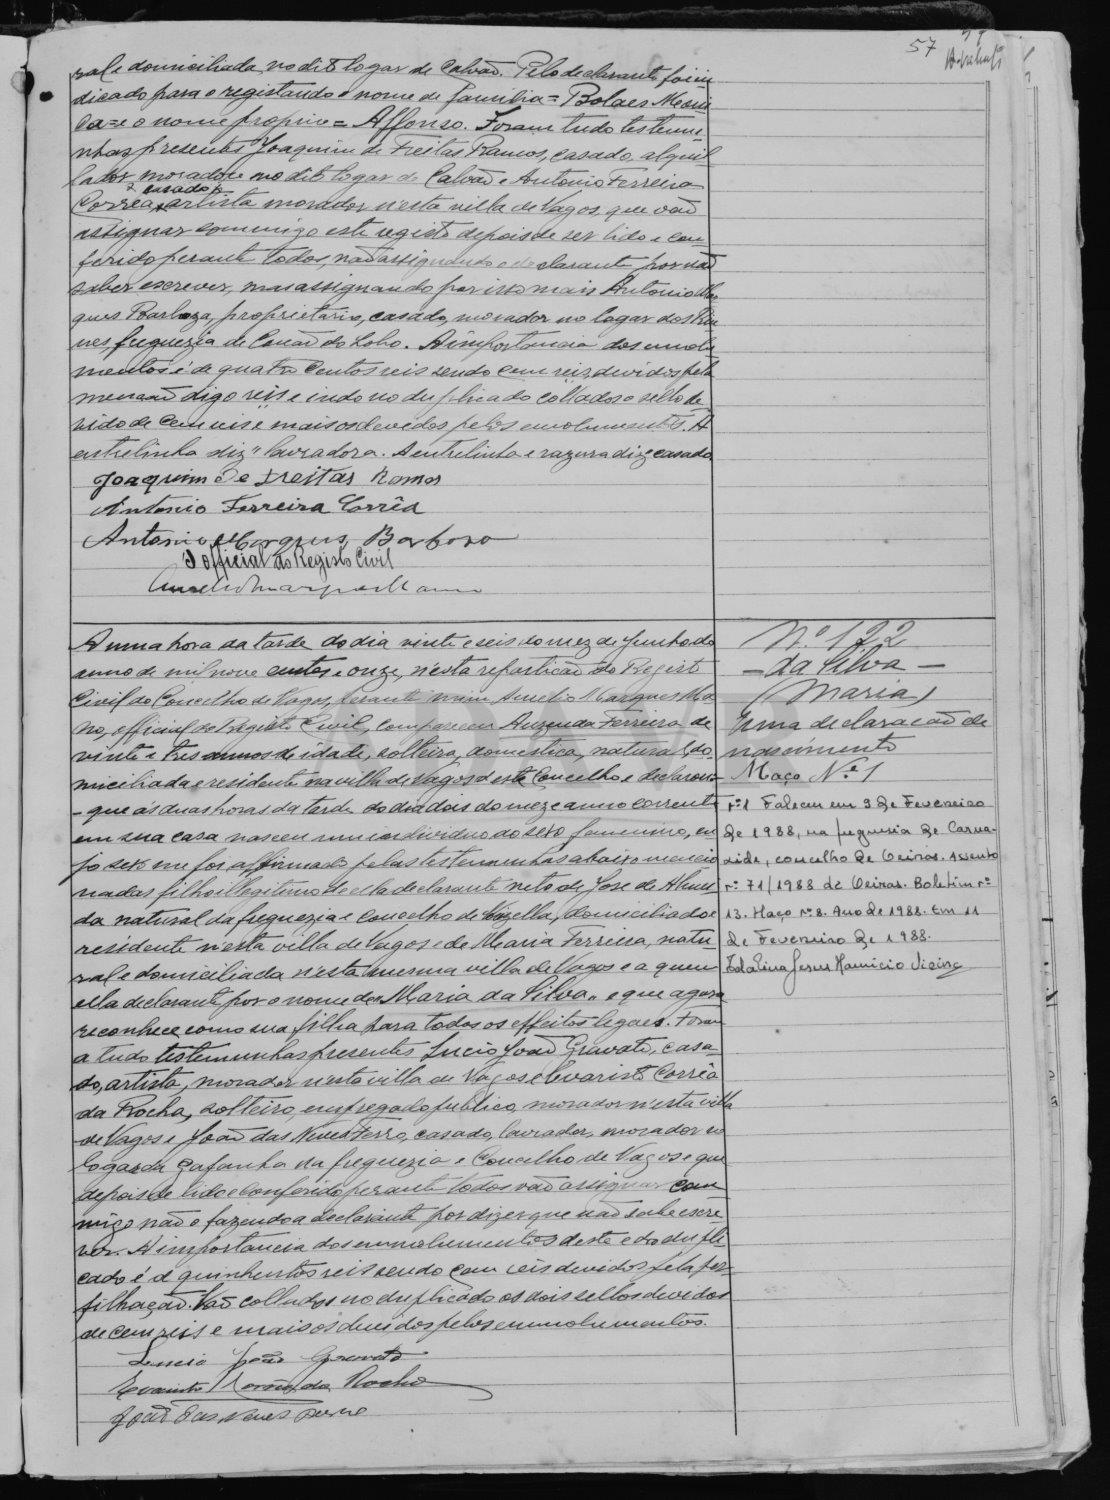 57
ral e domiciliada no dito logar de Calvão. Pelo declarante foi in
dicado para o registando o nome de familia = Bolaes Moni
ca = e o nome proprio = Affonso. Foram tudo testemu
nhas presentes Joaquim de Freitas Ramos, casado, alquil
lador morador no dito logar de Calvão e Antonio Ferreira
casado
Corrêa, artista morador n'esta villa de Vagos, que vão
assignar commigo este registo depois de ser lido e con
ferido perante todos, não assignando o declarante por não
saber escrever, mas assignando por isso mais Antonio Mar
ques Barboza, proprietario, casado, morador no logar dos
freguezia de Covão do Lobo. A importancia dos emolu
mentos é de quatro centos reis sendo cem reis devidos pela
menção digo reis e indo no duplicado collados o sello de
vido de cem reis e mais os devidos pelos emolumentos. A
entrelinha diz "lavradora. A entrelinha e razura diz casado
Joaquim de Freitas Ramos
Antonio Ferreira Corrêa
Antonio Marques Barboza
O official do Registo Civil
A uma hora da tarde do dia vinte e seis do mez de Junho do
anno de mil nove centos e onze, n'esta repartição do Registo
Civil do Concelho de Vagos, perante mim Aurelio Marques Ma
no, official do Registo Civil, compareceu Auzenda Ferreira de
vinte e tres annos de idade, solteira, domestica, natural, do-
miciliada e residente na villa de Vagos d'este Concelho e declarou-
-que ás duas horas da tarde do dia dois do mez e anno corrente
em sua casa nasceu um individuo do sexo femenino, cu
jo sexo me foi affirmado pelas testemunhas abaixo mencio
nadas filha illegitima de ella declarante neta de José de Almei
da natural da freguezia e concelho de Vizella, domiciliado e
residente n'esta villa de Vagos e de Maria Ferreira, natu
ral e domiciliada n'esta mesma villa de Vagos e a quem
ella declarante poz o nome de "Maria da Silva" e que agora
reconhece como sua filha para todos os effeitos legaes. Foram
a tudo testemunhas presentes Lucio João Gravato, casa-
do, artista, morador n'esta villa de Vagos e Evaristo Corrêa
da Rocha, solteiro, empregado publico, morador n'esta villa
de Vagos e João das Neves Ferro, casado, lavrador, morador no
logar da Gafanha na freguezia e Concelho de Vagos e que
depois de lido e conferido perante todos vão assignar com
migo não o fazendo a declarante por dizer que não sabe escre
ver. A importancia dos emolumentos deste e do dupli
cado é de quinhentos reis sendo cem reis devidos pela per-
filhação. Vão collados no duplicado os dois sellos devidos
de cem reis e mais os devidos pelos emolumentos.
Lucio João Gravato
Evaristo Corrêa da Rocha
João das Neves Ferro
Nº 122
- da Silva -
(Maria)
Uma declaração de
nascimento
Maço Nº 1
Nº 1 Faleceu em 9 de Fevereiro
de 1988, na freguesia de Carna-
xide, concelho de Oeiras. Assento
nº 71/1988 de Oeiras. Boletim nº
13. Maço nº 8. Ano de 1988. Em 11
de Fevereiro de 1988.